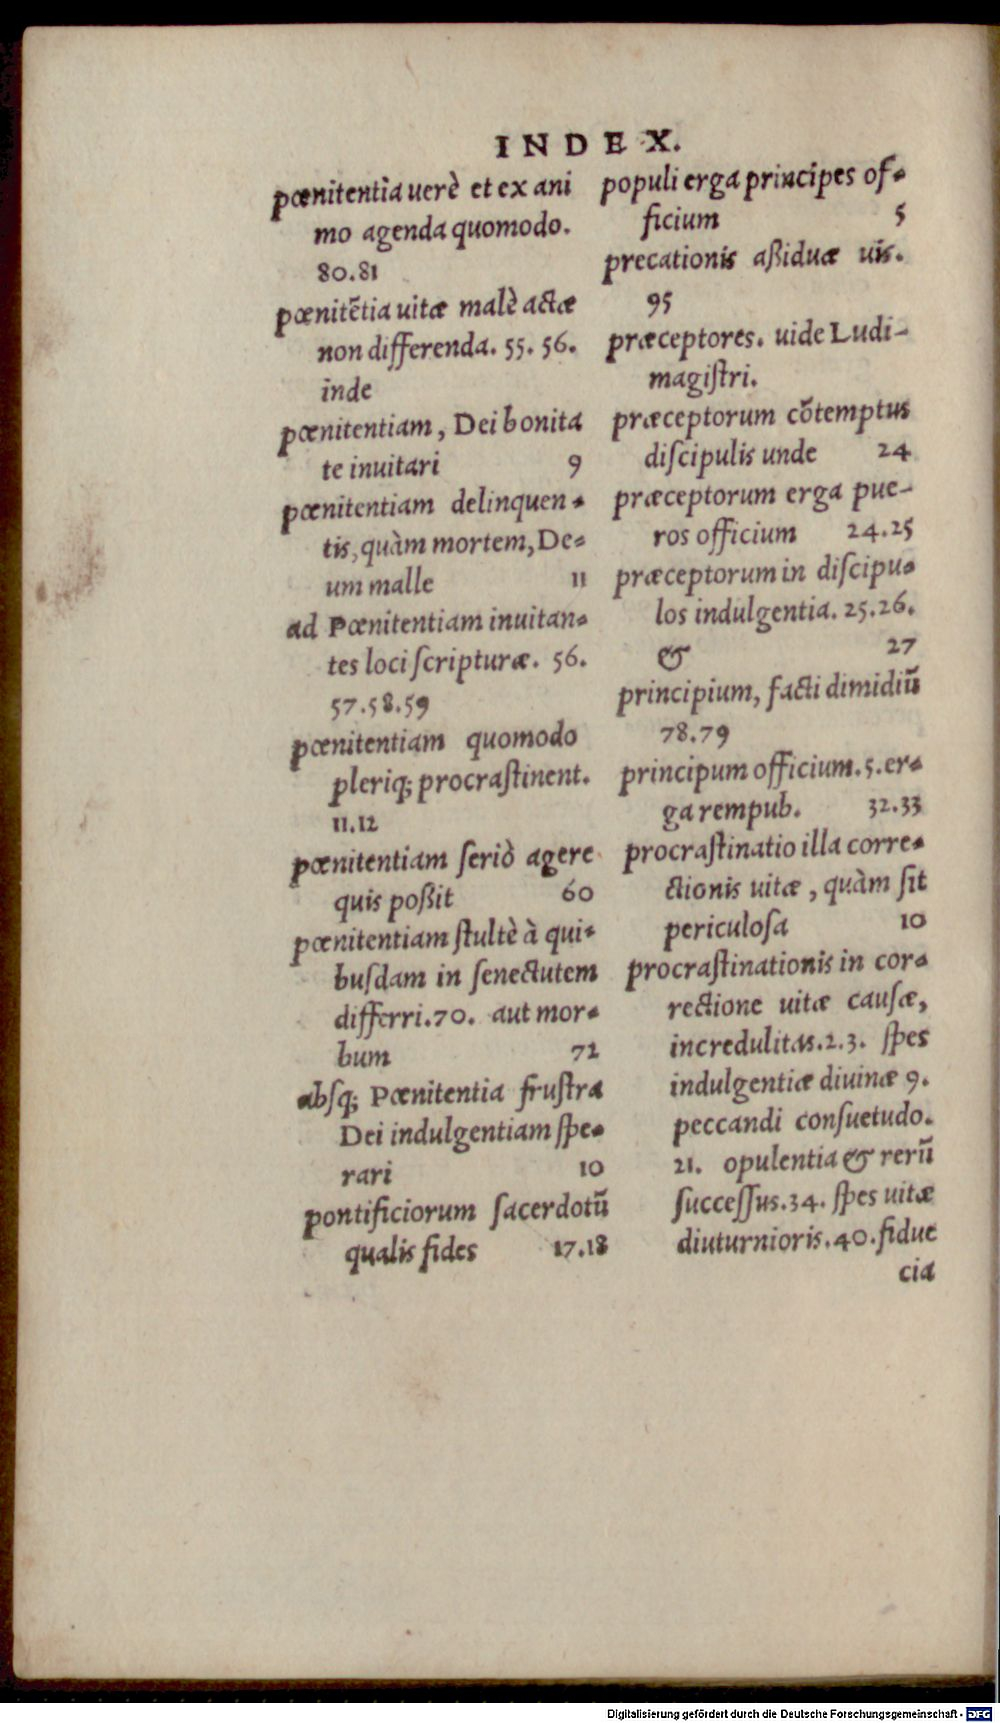 INDEX.
pœnitentia uerè et ex ani
mo agenda quomodo.
80.81
pœnitẽtia uitæ malè actæ
non differenda. 55. 56.
inde
pœnitentiam, Dei bonita
te inuitari 9
pœnitentiam delinquen-
tis, quàm mortem, De-
um malle 11
ad Pœnitentiam inuitan-
tes loci ſcripturæ. 56.
57.58.59
pœnitentiam quomodo
pleriq; procraſtinent.
11.12
pœnitentiam ſeriò agere
quis poßit 60
pœnitentiam ſtultè à qui-
buſdam in ſenectutem
differri.70. aut mor-
bum 72
abſq; Pœnitentia fruſtra
Dei indulgentiam ſpe-
rari 10
pontificiorum ſacerdotũ
qualis fides 17.18
populi erga principes of-
ficium 5
precationis aßiduæ uis.
95
præceptores. uide Ludi-
magiſtri.
præceptorum cõtemptus
diſcipulis unde 24
præceptorum erga pue-
ros officium 24.25
præceptorum in diſcipu-
los indulgentia. 25.26.
& 27
principium, facti dimidiũ
78.79
principum officium.5.er-
ga rempub. 32.33
procraſtinatio illa corre-
ctionis uitæ, quàm ſit
periculoſa 10
procraſtinationis in cor-
rectione uitæ cauſæ,
incredulitas.2.3. ſpes
indulgentiæ diuinæ 9.
peccandi conſuetudo.
21. opulentia & rerũ
ſucceſſus.34. ſpes uitæ
diuturnioris.40.fidu-
cia
Digitalisierung gefördert durch die Deutsche Forschungsgemeinschaft - DFG